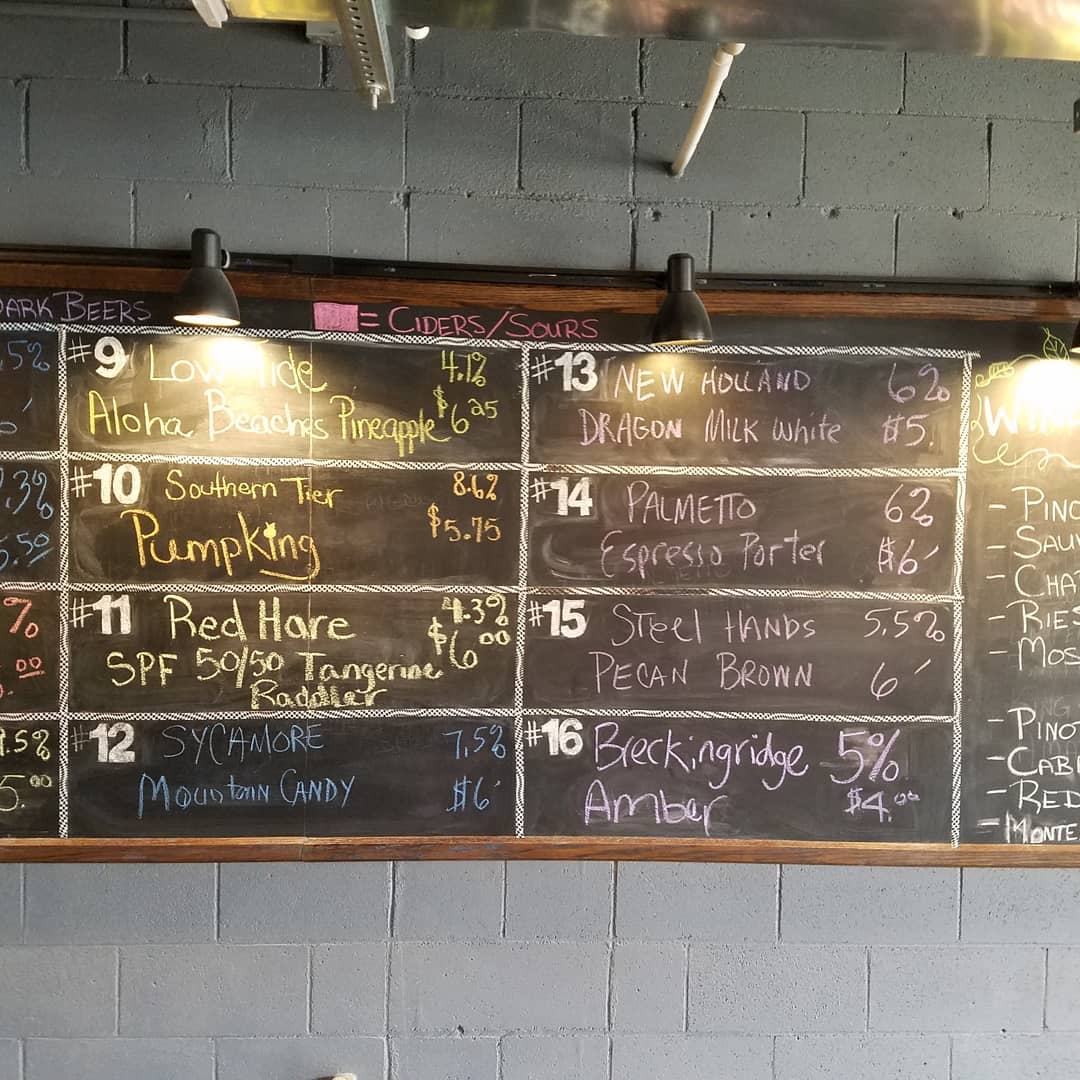 DARK BEERS
= CIDERS/SOURS
.5%
#9 Low Tide 4.7%
Aloha Beaches Pineapple $6.25
.3%
5.50
#10 Southern Tier 8.6%
Pumpking $5.75
%
.00
#11 Red Hare 4.3%
SPF 50/50 Tangerine $6.00
Raddler
.5%
5.00
#12 SYCAMORE 7.5%
Mountain CANDY $6
#13 NEW HOLLAND 6%
DRAGON MILK White $5.
#14 PALMETTO 6%
Espresso Porter $6
#15 STeel HANDS 5.5%
PECAN BROWN 6
#16 Breckingridge 5%
Amber $4.00
WIN
- PINO
- SAU
- CHA
- RIES
- MOS
- PINOT
- CAB
- RED
- MONTE